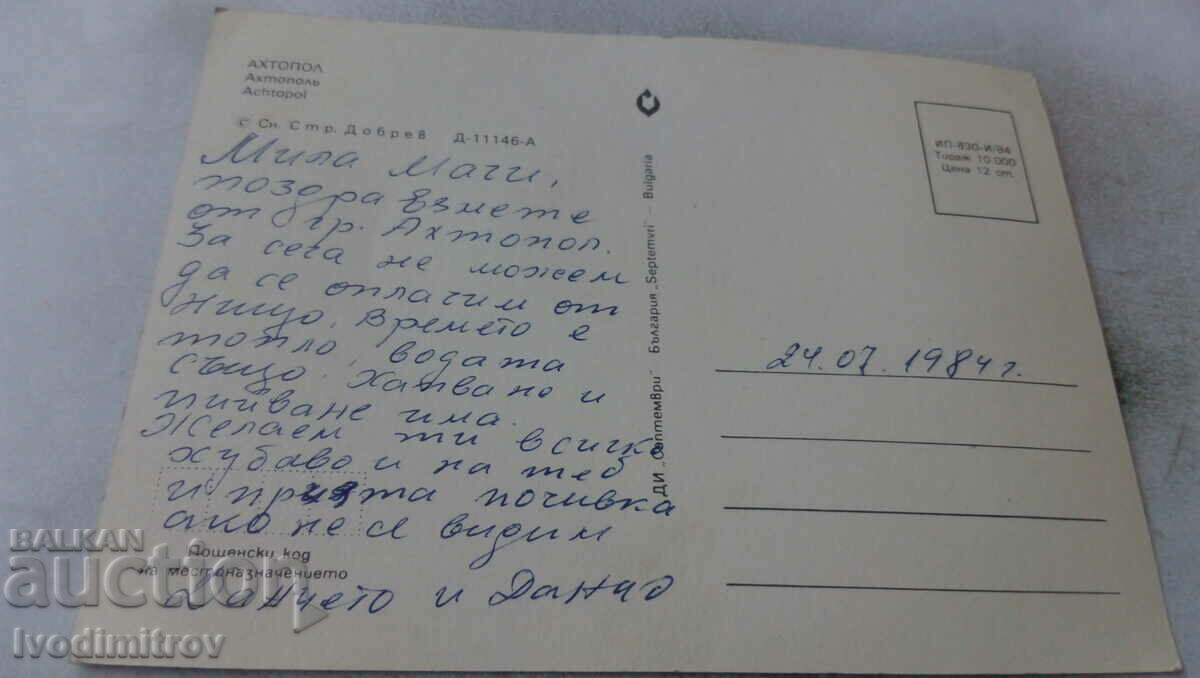 АХТОПОЛ
Ахтополь
Achtopol
© Сн. Стр. Добрев Д-11146-А
Мила Маги,
поздра вънете
от гр. Ахтопол.
За сега не можем
да се оплачим от
нищо. Времето е
топло, водата
също. Хапване и
пийване има.
Желаем ти всичко
хубаво и на теб
и прията почивка
ако не се видим
Пощенски код
на местоназначението
Данчето и Данчо
ДИ „Септември" България „Septemvri" — Bulgaria
ИП-830-И/84
Тираж 10 000
Цена 12 ст.
24.07.1984 г.
BALKAN
auction
Ivodimitrov